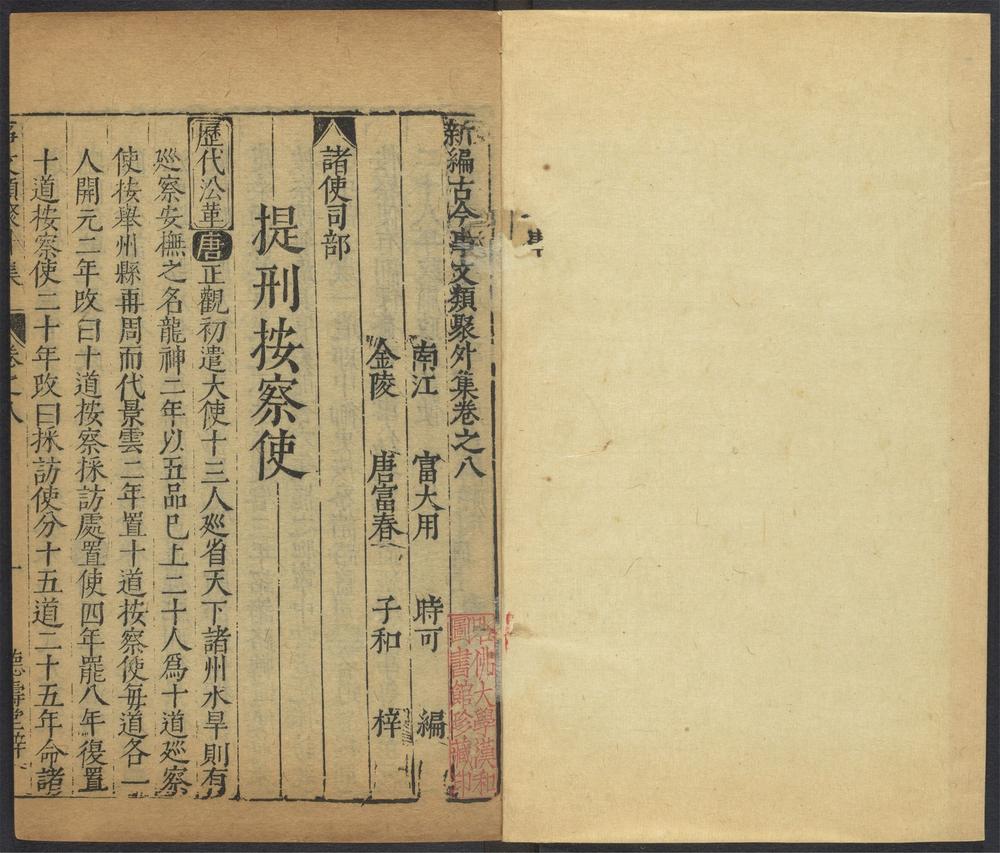 新編古今事文類聚外集卷之八
南江 富大用 時可 編
金陵 唐富春 子和 梓
諸使司部
提刑按察使
歷代沿革 唐 正觀初遣大使十三人廵省天下諸州水旱則有
廵察安撫之名龍神二年以五品已上二十人爲十道廵察
使按舉州縣再周而代景雲二年置十道按察使每道各一
人開元二年改曰十道按察採訪處置使四年罷八年復置
十道按察使二十年改曰採訪使分十五道二十五年命諸
事文類聚外集 卷之八 一 德壽堂梓
哈佛大學漢和
圖書館珍藏印